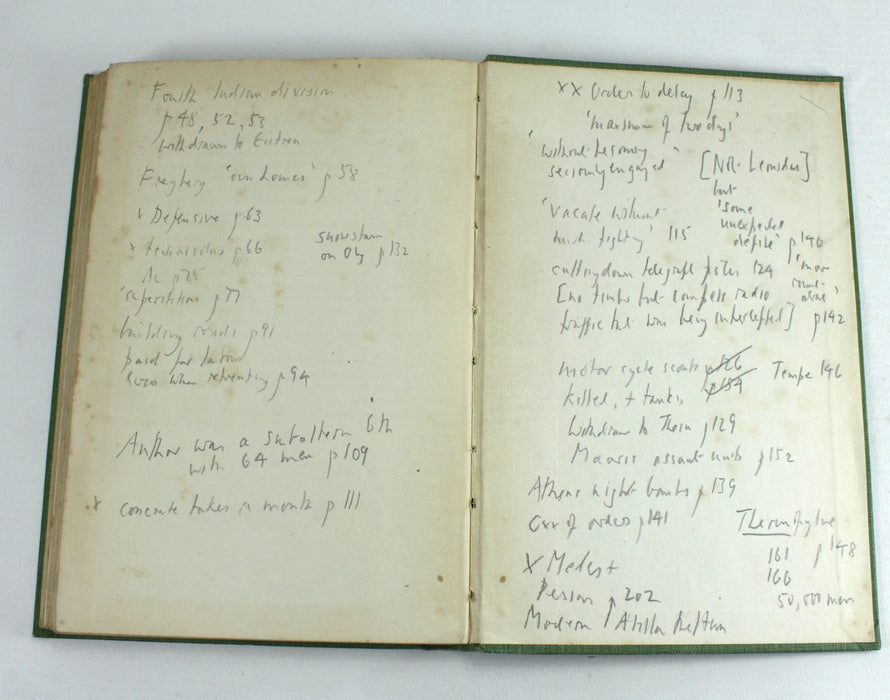 Fourth Indian division
p 48, 52, 53
withdrawn to Eritrea
Freyberg 'own homes' p 58
x Defensive p 63
x technicolor p 66
snowstorm
on Oly p 132
p 75
'superstition p 77
building roads p 91
paid for labour
when retreating p 94
Author was a subaltern 6th
with 64 men p 109
x concrete takes a month p 111
xx Order to delay p 113
'maximum of two days'
'without becoming
seriously engaged
[Not Leonidas]
but
'some
unexpected
defile' p 140
'vacate without
much fighting' 115
cutting down telegraph poles 124
[no timber but compels radio
traffic but was being intercepted] p 142
motor cycle scouts p 126
p 154
Tempe 146
killed, + tanks
Withdraw to Therm p 129
Maoris assault p 152
Athens night bombs p 139
of orders p 141
Thermopylae
p 148
161
166
50,000 men
X Medes +
Persians p 202
Modern